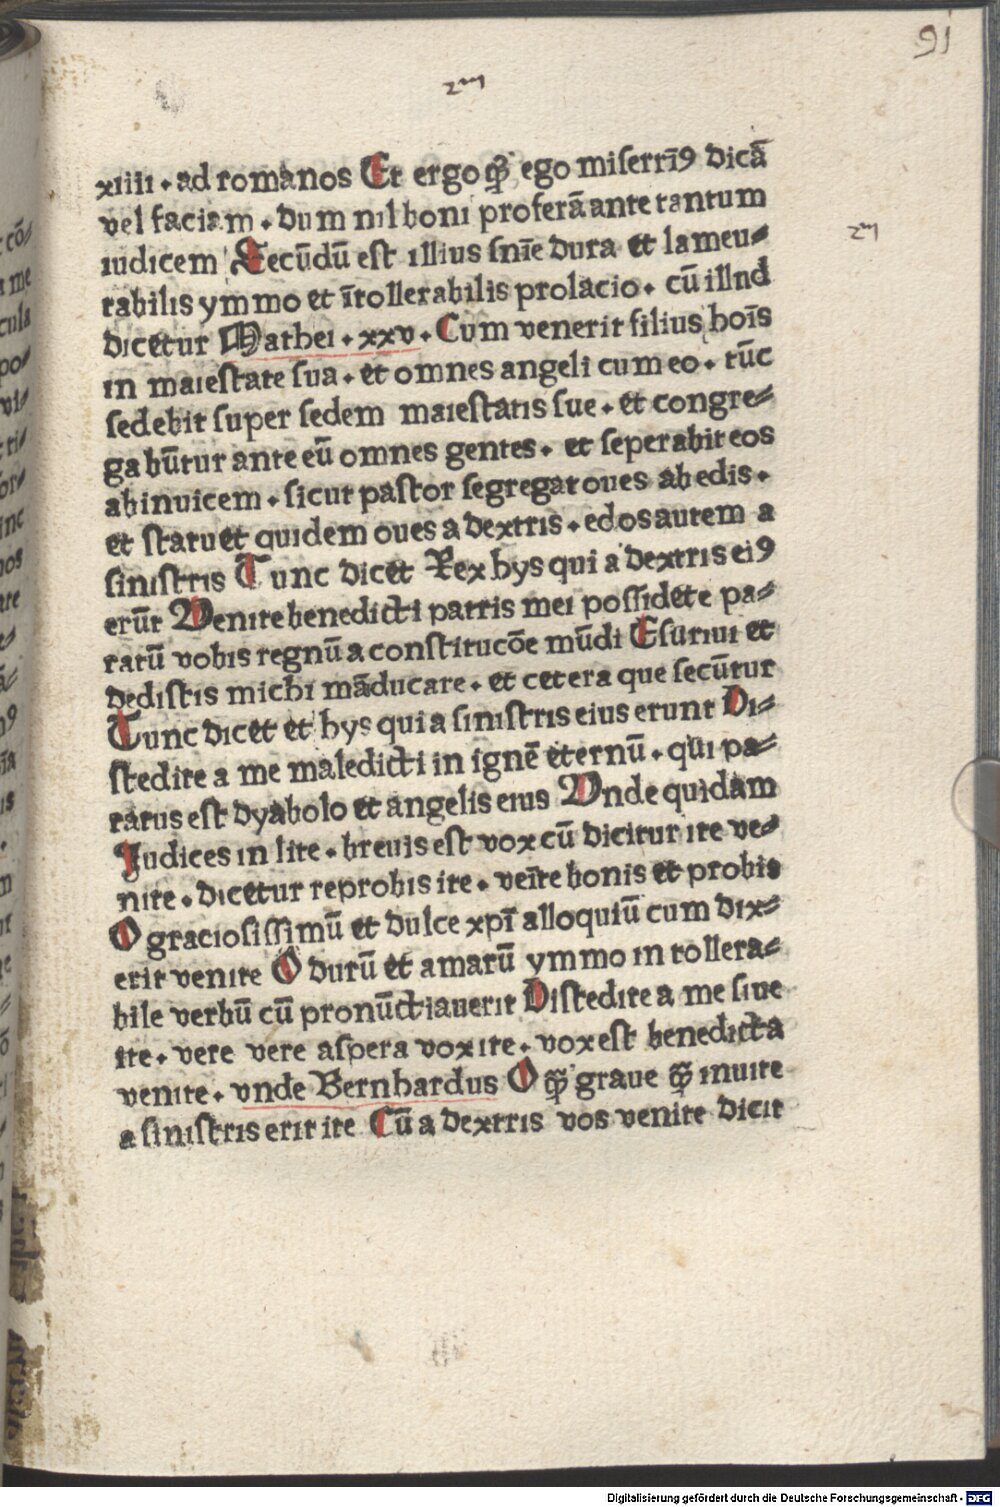 91
2m
xiiii . ad romanos Et ergo qͥd ego miserrīꝰ dicā
vel faciam . dum nil boni proferā ante tantum
iudicem Secūdū est illius sn̄ie dura et lameu⸗
2m
tabilis ymmo et ītollerabilis prolacio . cū illnd
dicetur Mathei . xxv . Cum venerit filius hoīs
in maiestate sua . et omnes angeli cum eo . tūc
sedebit super sedem maiestatis sue . et congre⸗
gabūtur ante eū omnes gentes . et seperabit eos
abinuicem . sicut pastor segregat oues ab edis .
et statuet quidem oues a dextris . edos autem a
sinistris Tunc dicet Rex hys qui a dextris eiꝰ
erūt Venite benedicti patris mei possidete pa⸗
ratū vobis regnū a constitucōe mūdi Esuriui et
dedistis michi māducare . et cetera que secūtur
Tunc dicet et hys qui a sinistris eius erunt Di⸗
stedite a me maledicti in ignē eternū . qui pa⸗
ratus est dyabolo et angelis eius Vnde quidam
Iudices in lite . breuis est vox cū dicitur ite ve⸗
nite . dicetur reprobis ite . veīte bonis et probis
O graciosissimū et dulce xpī alloquiū cum dix⸗
erit venite O durū et amarū ymmo in tollera⸗
bile verbū cū pronūctiauerit Distedite a me siue
ite . vere vere aspera vox ite . vox est benedicta
venite . vnde Bernhardus O qͣ̄ graue qͣ̄ inuite
a sinistris erit ite Cū a dextris vos venite dicit
Digitalisierung gefördert durch die Deutsche Forschungsgemeinschaft - DFG